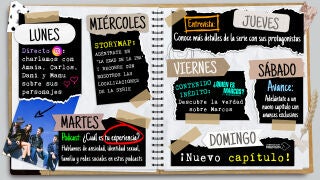 LUNES
Directo
charlamos con
Amaia, Carlos,
Dani y Manu
sobre sus
personajes
MARTES
Podcast: ¿Cuál es tu experiencia?
Hablamos de ansiedad, identidad sexual,
familia y redes sociales en estos podcasts
MIÉRCOLES
STORYMAP:
ADÉNTRATE EN
Y RECORRE CON
NOSOTROS LAS
LOCALIZACIONES
DE LA SERIE
Entrevista:
JUEVES
Conoce más detalles de la serie con sus protagonistas
VIERNES
CONTENIDO
INÉDITO:
¿QUIÉN ES
MARCOS?
Descubre la verdad
sobre Marcos
SÁBADO
Avance:
Adelántate a un
nuevo capítulo con
avances exclusivos
DOMINGO
¡Nuevo capítulo!